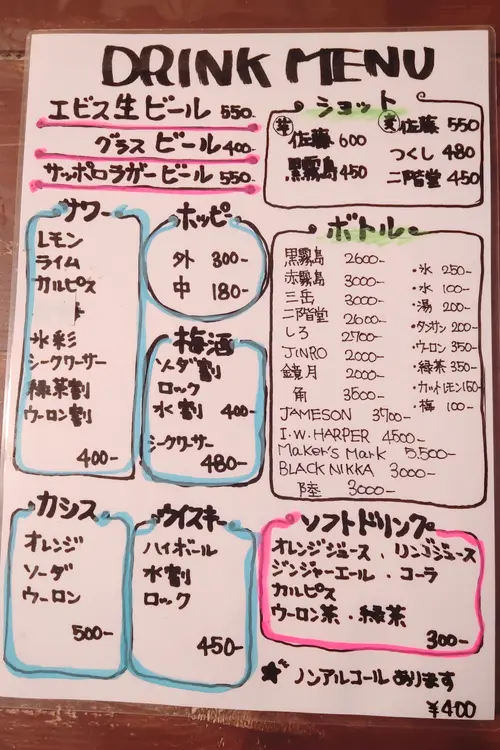 DRINK MENU
エビス生ビール 550-
グラスビール 400-
サッポロラガービール 550-
ショット
芋 佐藤 600
麦 佐藤 550
黒霧島 450
つくし 480
二階堂 450
サワー
レモン
ライム
カルピス
氷彩
シークワーサー
緑茶割
ウーロン割
400-
ホッピー
外 300-
中 180-
梅酒
ソーダ割
ロック
水割 400-
シークワーサー
480-
ボトル
黒霧島 2600-
赤霧島 3000-
三岳 3000-
二階堂 2600-
しろ 2700-
JINRO 2000-
鏡月 2000-
角 3500-
JAMESON 3700-
I.W.HARPER 4500-
Maker's Mark 5,500-
BLACK NIKKA 3000-
陸 3000-
・氷 250-
・水 100-
・湯 200-
・タンサン 200-
・ウーロン 350-
・緑茶 350-
・カットレモン 150-
・梅 100-
カシス
オレンジ
ソーダ
ウーロン
500-
ウイスキー
ハイボール
水割
ロック
450-
ソフトドリンク
オレンジジュース . リンゴジュース
ジンジャーエール . コーラ
カルピス
ウーロン茶 . 緑茶
300-
★ ノンアルコールあります
¥400